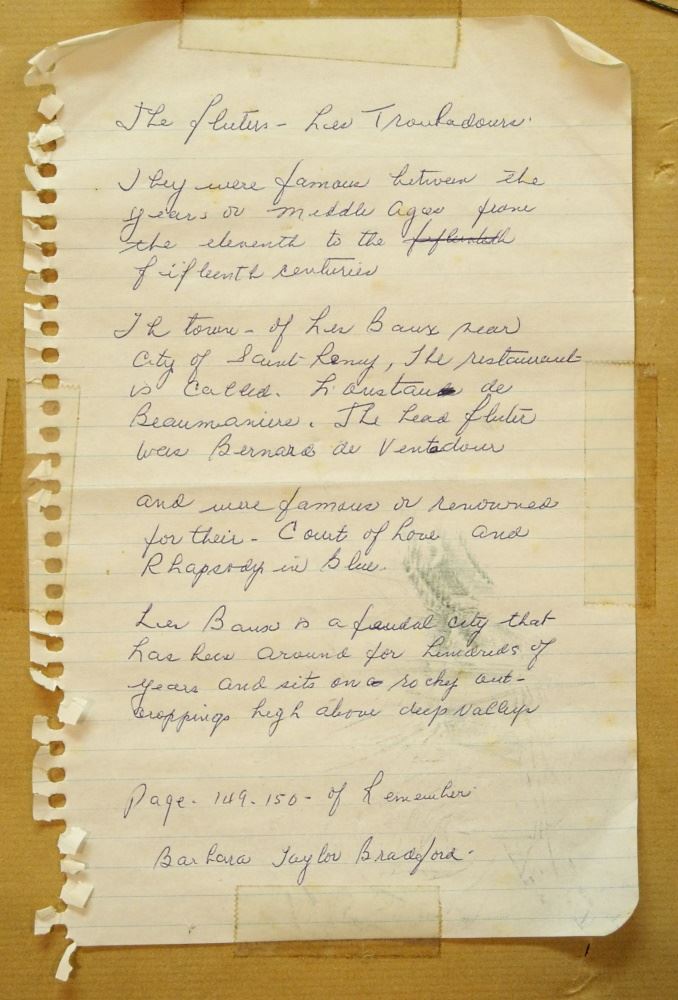 The fluters - Les Troubadours.
They were famous between the
years or middle ages from
the eleventh to the
fifteenth centuries
Th town - of Les Baux near
City of Saint-Remy, The restaurant
is Called. L'oustau de
Beaumaniere. The head fluter
was Bernard de Ventadour
and were famous or renowned
for their - Court of Love and
Rhapsody in Blue.
Les Baux is a feudal city that
has been around for hundreds of
years and sits on a rocky out-
croppings high above deep valleys
Page. 149-150- of Remember
Barbara Taylor Bradford.